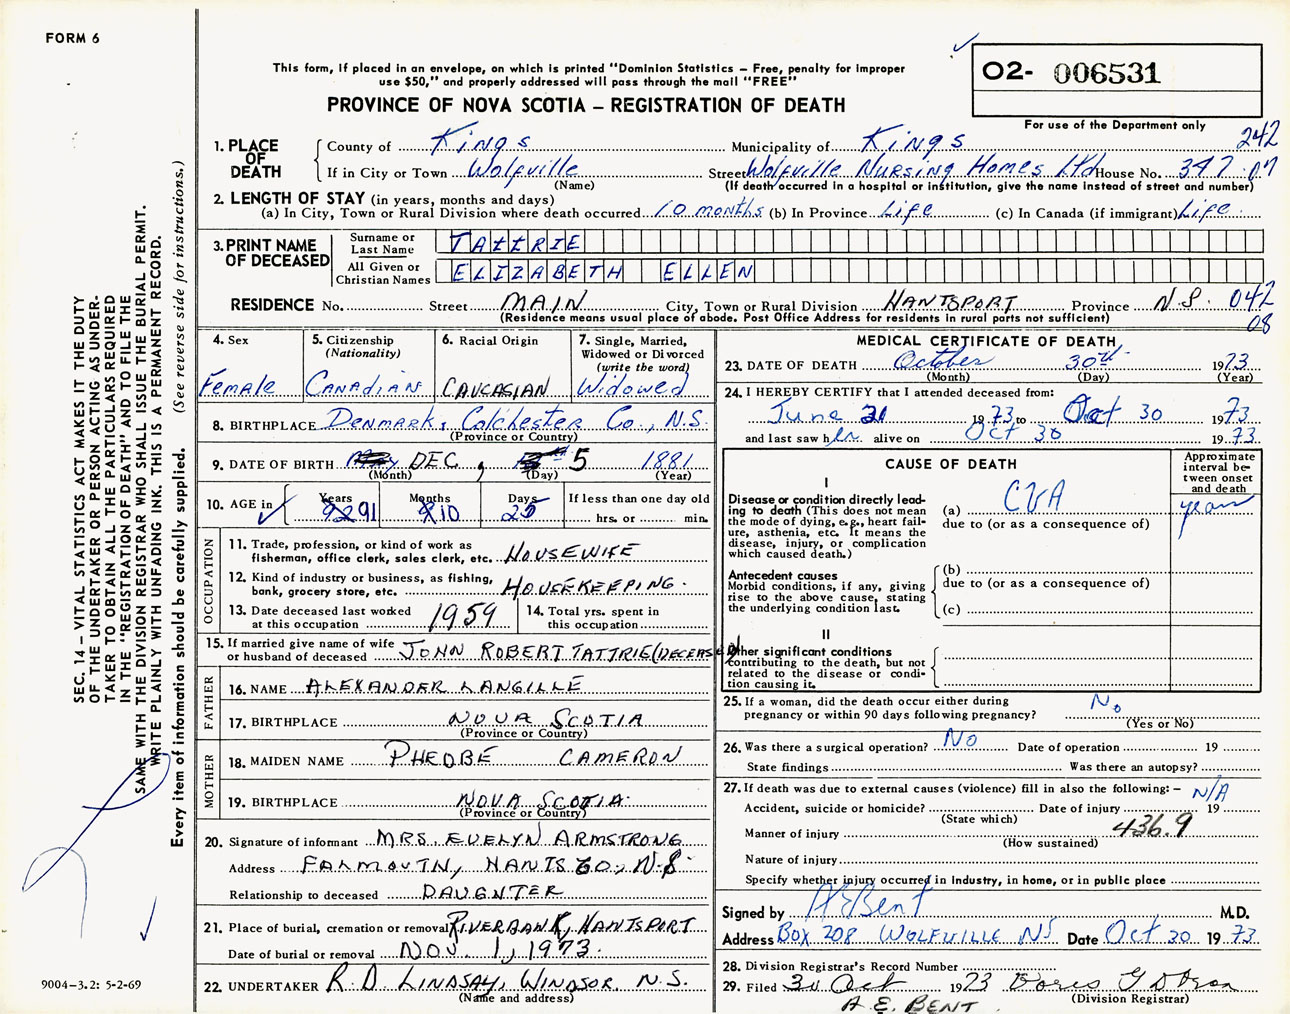 FORM 6
This form, if placed in an envelope, on which is printed "Dominion Statistics – Free, penalty for improper
use $50," and properly addressed will pass through the mail "FREE"
PROVINCE OF NOVA SCOTIA – REGISTRATION OF DEATH
02- 006531
For use of the Department only
1. PLACE OF DEATH
County of Kings Municipality of Kings 242
If in City or Town Wolfville Street Wolfville Nursing Homes Ltd House No. 347 07
(Name) (If death occurred in a hospital or institution, give the name instead of street and number)
2. LENGTH OF STAY (in years, months and days)
(a) In City, Town or Rural Division where death occurred 10 months (b) In Province Life (c) In Canada (if immigrant) Life
3. PRINT NAME OF DECEASED
Surname or Last Name TATTRIE
All Given or Christian Names ELIZABETH ELLEN
RESIDENCE No. Street MAIN City, Town or Rural Division HANTSPORT Province N.S. 042
(Residence means usual place of abode. Post Office Address for residents in rural parts not sufficient) 08
4. Sex Female
5. Citizenship (Nationality) CANADIAN
6. Racial Origin CAUCASIAN
7. Single, Married, Widowed or Divorced (write the word) Widowed
8. BIRTHPLACE Denmark, Colchester Co., N.S.
(Province or Country)
9. DATE OF BIRTH DEC, 5 1881
(Month) (Day) (Year)
10. AGE in Years 91 Months 10 Days 25 If less than one day old
hrs. or min.
OCCUPATION
11. Trade, profession, or kind of work as
fisherman, office clerk, sales clerk, etc. HOUSEWIFE
12. Kind of industry or business, as fishing,
bank, grocery store, etc. HOUSEKEEPING
13. Date deceased last worked
at this occupation 1959
14. Total yrs. spent in
this occupation
15. If married give name of wife
or husband of deceased JOHN ROBERT TATTRIE (DECEASED)
FATHER
16. NAME ALEXANDER LANGILLE
17. BIRTHPLACE NOVA SCOTIA
(Province or Country)
MOTHER
18. MAIDEN NAME PHEOBE CAMERON
19. BIRTHPLACE NOVA SCOTIA
(Province or Country)
20. Signature of informant MRS EVELYN ARMSTRONG
Address FALMOUTH, HANTS CO., N.S.
Relationship to deceased DAUGHTER
21. Place of burial, cremation or removal RIVERBANK, HANTSPORT
Date of burial or removal NOV. 1, 1973
22. UNDERTAKER R.D. LINDSAY, WINDSOR N.S.
(Name and address)
MEDICAL CERTIFICATE OF DEATH
23. DATE OF DEATH October 30th 1973
(Month) (Day) (Year)
24. I HEREBY CERTIFY that I attended deceased from:
June 1973 to Oct 30 1973
and last saw her alive on Oct 30 1973
CAUSE OF DEATH
Approximate interval between onset and death
I
Disease or condition directly leading to death (This does not mean the mode of dying, e.g., heart failure, asthenia, etc. It means the disease, injury, or complication which caused death.)
(a) CVA years
due to (or as a consequence of)
Antecedent causes
Morbid conditions, if any, giving rise to the above cause, stating the underlying condition last.
(b)
due to (or as a consequence of)
(c)
II
Other significant conditions
contributing to the death, but not related to the disease or condition causing it.
25. If a woman, did the death occur either during
pregnancy or within 90 days following pregnancy? No
(Yes or No)
26. Was there a surgical operation? No Date of operation 19
State findings Was there an autopsy?
27. If death was due to external causes (violence) fill in also the following: – N/A
Accident, suicide or homicide? Date of injury 19
(State which)
Manner of injury 436.9
(How sustained)
Nature of injury
Specify whether injury occurred in industry, in home, or in public place
Signed by A E Bent M.D.
Address Box 208 WOLFVILLE NS Date Oct 30 1973
28. Division Registrar's Record Number
29. Filed 30 Oct 1973 Doris G
(Division Registrar)
A. E. BENT
SEC. 14 – VITAL STATISTICS ACT MAKES IT THE DUTY
OF THE UNDERTAKER OR PERSON ACTING AS UNDER-
TAKER TO OBTAIN ALL THE PARTICULARS REQUIRED
IN THE "REGISTRATION OF DEATH" AND TO FILE THE
SAME WITH THE DIVISION REGISTRAR WHO SHALL ISSUE THE BURIAL PERMIT.
WRITE PLAINLY WITH UNFADING INK. THIS IS A PERMANENT RECORD.
Every item of information should be carefully supplied. (See reverse side for instructions.)
9004-3.2: 5-2-69